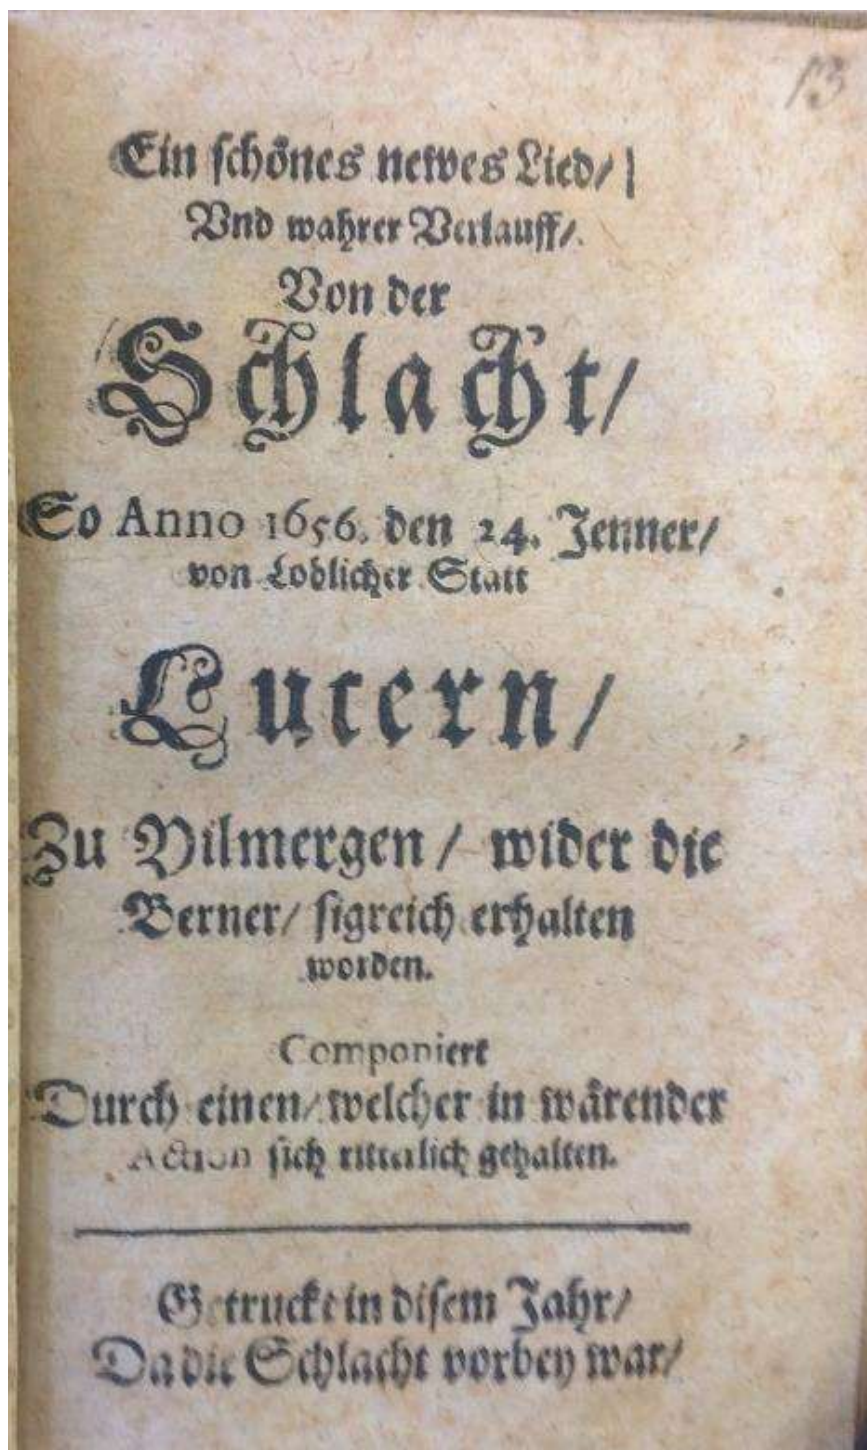 13
Ein schönes newes Lied/
Vnd wahrer Verlauff/.
Von der
Schlacht/
So Anno 1656. den 24. Jenner/
von Loblicher Statt
Lucern/
Zu Vilmergen/ wider die
Berner/ sigreich erhalten
worden.
Componiert
Durch einen/ welcher in wårender
Action sich ritterlich gehalten.
Getruckt in disem Jahr/
Da die Schlacht vorbey war/